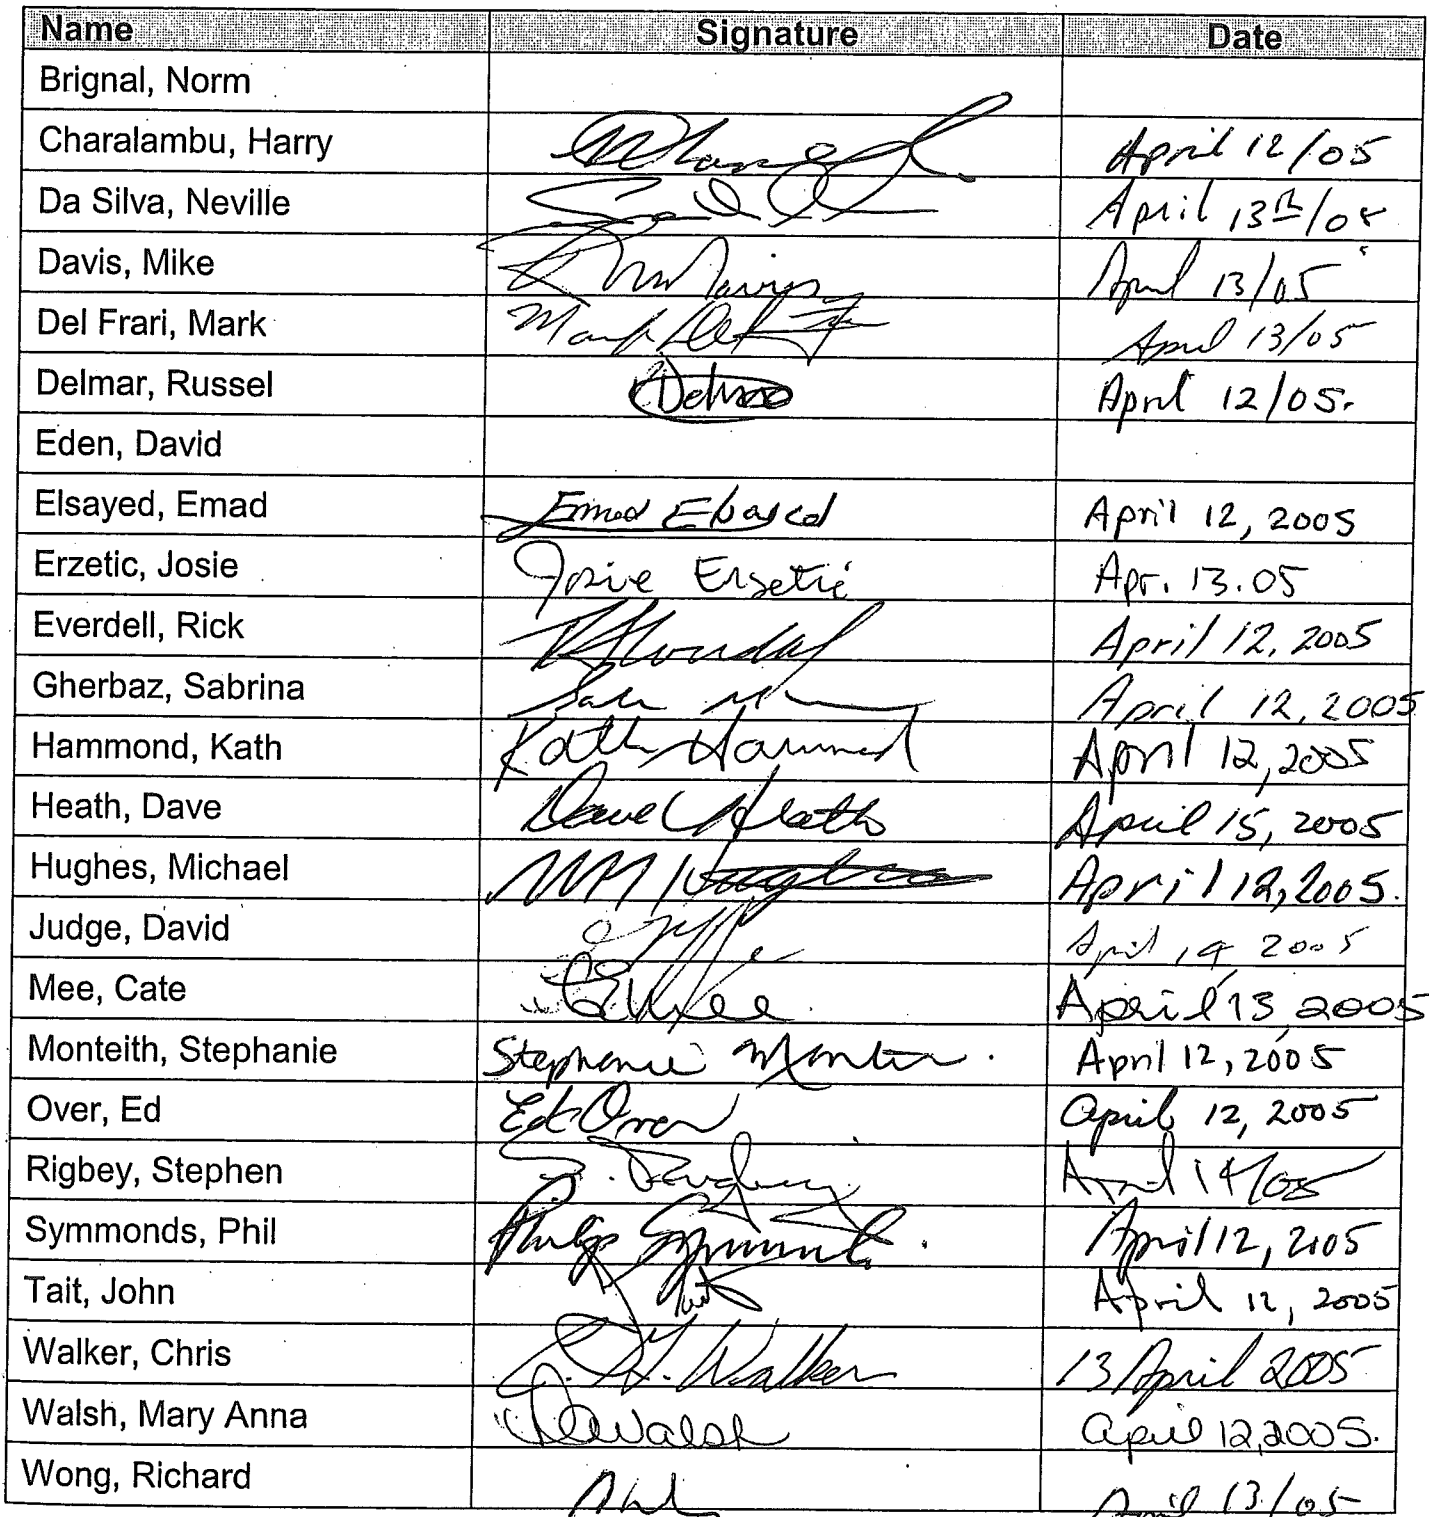 Name Signature Date
Brignal, Norm
Charalambu, Harry April 12/05
Da Silva, Neville April 13th/05
Davis, Mike April 13/05
Del Frari, Mark April 13/05
Delmar, Russel April 12/05.
Eden, David
Elsayed, Emad Emad Elsayed April 12, 2005
Erzetic, Josie Josie Erzetic Apr. 13.05
Everdell, Rick April 12, 2005
Gherbaz, Sabrina April 12, 2005
Hammond, Kath Kath Hammond April 12, 2005
Heath, Dave Dave Heath April 15, 2005
Hughes, Michael April 12, 2005.
Judge, David April 14, 2005
Mee, Cate April 13, 2005
Monteith, Stephanie Stephanie April 12, 2005
Over, Ed Ed Over April 12, 2005
Rigbey, Stephen S. Rigbey April 14/05
Symmonds, Phil Philip Symmonds April 12, 2005
Tait, John Tait April 12, 2005
Walker, Chris C. H. Walker 13 April 2005
Walsh, Mary Anna Walsh April 12, 2005.
Wong, Richard April 13/05